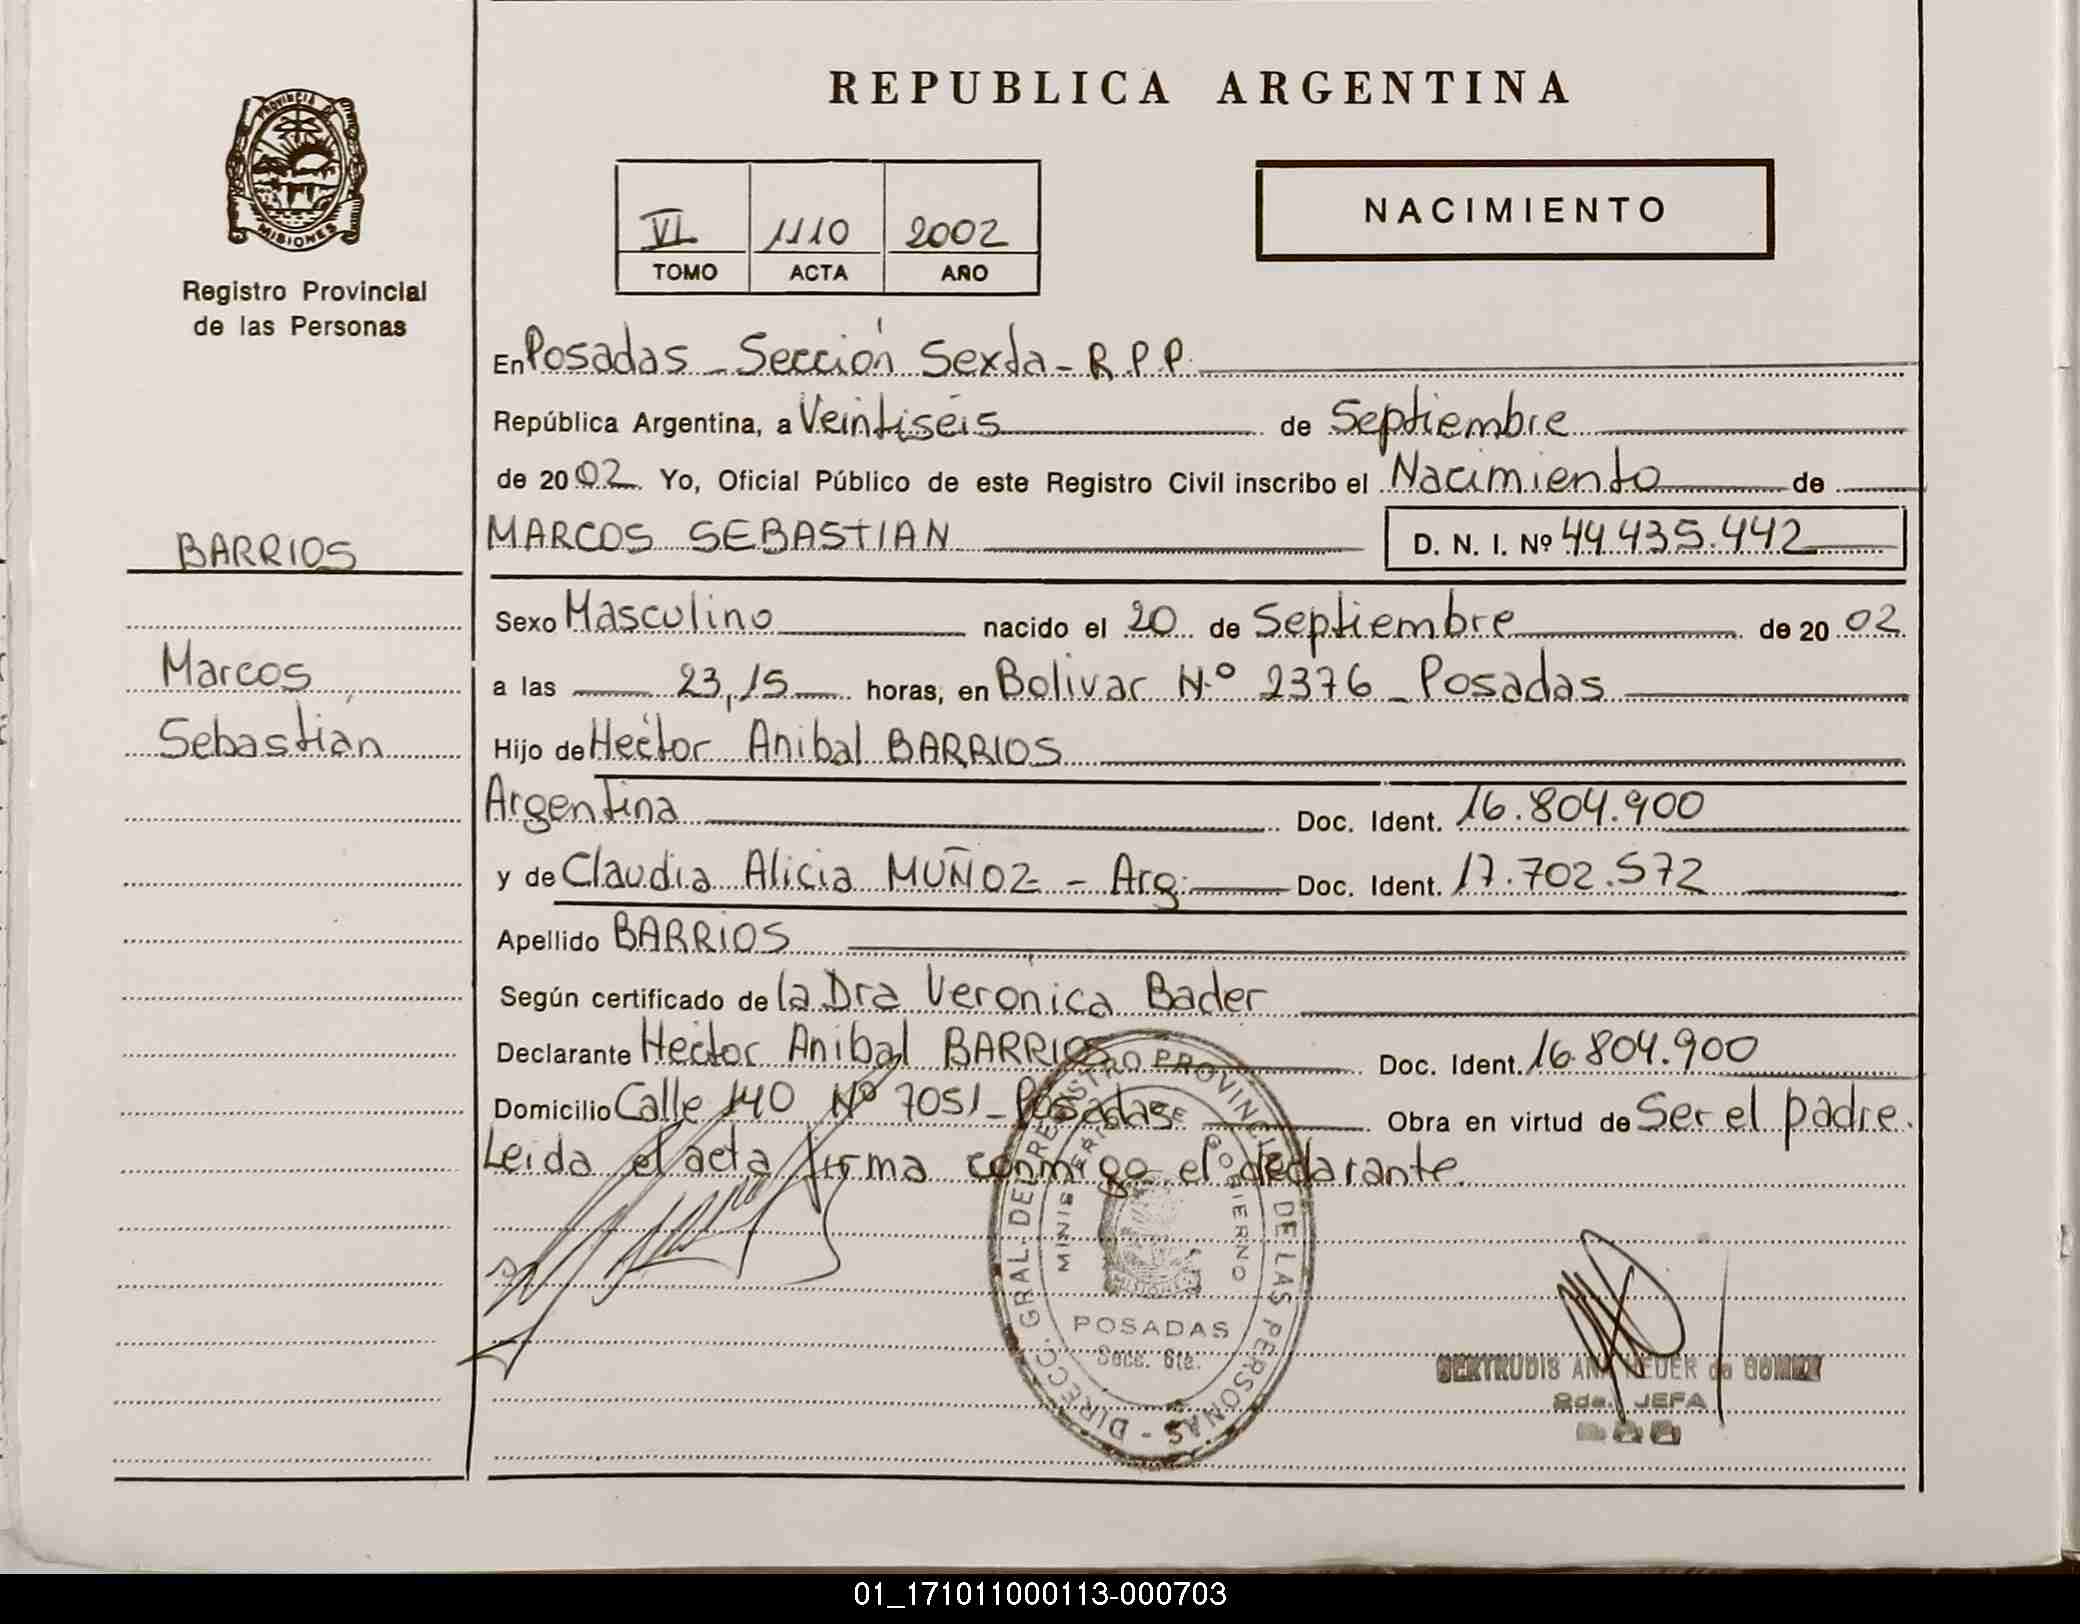 REPUBLICA ARGENTINA
PROVINCIA DE
MISIONES
Registro Provincial
de las Personas
VI 1110 2002
TOMO ACTA AÑO
NACIMIENTO
En Posadas - Sección Sexta - R.P.P.
República Argentina, a Veintiséis de Septiembre
de 2002. Yo, Oficial Público de este Registro Civil inscribo el Nacimiento de
BARRIOS
MARCOS SEBASTIAN D. N. I. Nº 44.435.442
Sexo Masculino nacido el 20 de Septiembre de 20 02
Marcos
a las 23,15 horas, en Bolivar N.º 2376 - Posadas
Sebastián
Hijo de Héctor Anibal BARRIOS
Argentina Doc. Ident. 16.804.900
y de Claudia Alicia MUÑOZ - Arg. Doc. Ident. 17.702.572
Apellido BARRIOS
Según certificado de la Dra Verónica Bader
Declarante Héctor Anibal BARRIOS Doc. Ident. 16.804.900
Domicilio Calle 140 Nº 7051 - Posadas Obra en virtud de Ser el padre.
Leida el acta firma conmigo el declarante.
DIRECC. GRAL. DEL REGISTRO PROVINCIAL DE LAS PERSONAS -
MINISTERIO DE GOBIERNO
POSADAS
Secc. 6ta.
GERTRUDIS ANA de GOMEZ
2da. JEFA
01_171011000113-000703